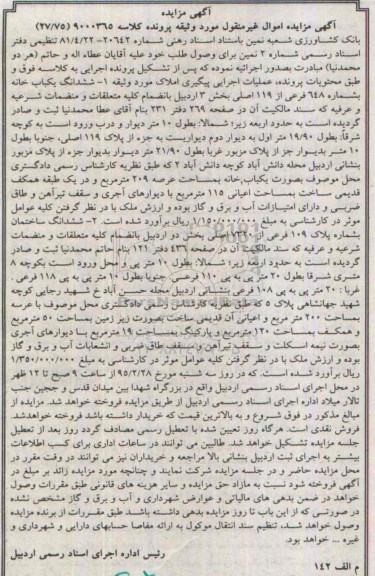 آگهی مزایده
آگهی مزایده اموال غیرمنقول مورد وثیقه پرونده کلاسه ۹۰۰۰۳۶۵ (۲۷/۷۵)
بانک کشاورزی شعبه نمین باستناد اسناد رهنی شماره ۲۰۶۴۲- ۸۱/۴/۲۲ تنظیمی دفتر
اسناد رسمی شماره ۲ نمین برای وصول طلب خود علیه آقایان عطاء اله و حاتم (هر دو
محمدنیا) مبادرت بصدور اجرائیه نموده که پس از تشکیل پرونده اجرایی به کلاسه فوق و
طبق محتویات پرونده، عملیات اجرایی پیگیری املاک مورد وثیقه ۱- ششدانگ یکباب خانه
بشماره ۶۴۸ فرعی از ۱۱۹ اصلی بخش ۳ اردبیل بانضمام کلیه متعلقات و منضمات شرعیه
و عرفیه که سند مالکیت آن در صفحه ۲۶۹ دفتر ۲۳۱ بنام آقای عطا محمدنیا ثبت و صادر
گردیده است به حدود اربعه زیر؛ شمالا: بطول ۱۰ متر دیوار و درب ورود است به کوچه
شرقاً: بطول ۱۹/۹۰ متر اول به دیوار دوم دیواریست به جزء از پلاک ۱۱۹ اصلی، جنوبا بطول
۱۰ متر بدیوار جزء از پلاک مزبور غربا بطول ۲۱/۹۰ متر دیوار بدیوار جزء از پلاک مزبور
بنشانی اردبیل محله دانش آباد کوچه دانش آباد ۲ که طبق نظریه کارشناس رسمی دادگستری
محل موصوف بصورت یکباب خانه بمساحت عرصه ۲۰۹ مترمربع و در یک طبقه همکف
قدیمی ساخت بمساحت اعیانی ۱۱۵ مترمربع با دیوارهای آجری و سقف تیرآهن و طاق
ضربی و دارای امتیازات آب و برق و گاز بوده و ارزش ملک با در نظر گرفتن کلیه عوامل
موثر در کارشناسی به مبلغ ۱/۱۵۰/۰۰۰/۰۰۰ ریال برآورد شده است. ۲- ششدانگ ساختمان
بشماره پلاک ۱۰۹ فرعی از ۷۳۶۰ اصلی بخش دو اردبیل بانضمام کلیه متعلقات و منضمات
شرعیه و عرفیه که سند مالکیت آن در صفحه ۴۳۶ دفتر ۱۲۱ بنام حاتم محمدنیا ثبت و صادر
گردیده است به حدود اربعه زیر: شمالا: بطول ۱۰ متر پی و محل ورود است بکوچه ۸
متری شرقا بطول ۲۰ متر پی به پی ۱۱۰ فرعی. جنوبا بطول ۱۰ متر پی به پی ۱۱۸ فرعی.
غربا: ۲۰ متر پی به پی ۱۰۸ فرعی بنشانی اردبیل محله حسن آباد خ شهید رجایی کوچه
شهید جهانشاهی پلاک ۵ که طبق نظریه کارشناس رسمی دادگستری محل موصوف با عرصه
بمساحت ۲۰۰ متر مربع و اعیانی آن قدیمی ساخت بصورت زیر زمین بمساحت ۵۰ مترمربع
و همکف بمساحت ۱۲۰ مترمربع و پارکینگ بمساحت ۱۹ مترمربع با دیوارهای آجری
بصورت نیمه اسکلت و سقف تیرآهن و باسقف طاق ضربی و انشعابات آب و برق و گاز
بوده و ارزش ملک با در نظر گرفتن کلیه عوامل موثر در کارشناسی به مبلغ ۱/۳۵۰/۰۰۰/۰۰۰
ریال برآورد شده است. که در روز سه شنبه مورخ ۹۵/۲/۲۸ از ساعت ۹ صبح تا ۱۲ ظهر
در محل اجرای اسناد رسمی اردبیل واقع در بزرگراه شهدا بین میدان قدس و ججین جنب
تالار میلاد اداره اجرای اسناد رسمی اردبیل از طریق مزایده فروخته خواهد شد. مزایده از
مبالغ مذکور در فوق شروع و به بالاترین قیمت که خریدار داشته باشد فروخته خواهدشد.
فروش نقدی است. هرگاه روز تعیین شده با تعطیل رسمی مصادف گردد روز بعد از تعطیل
جلسه مزایده تشکیل خواهد شد. طالبین می توانند در ساعات اداری برای کسب اطلاعات
بیشتر به اجرای ثبت اردبیل بنشانی بالا مراجعه و خریداران نیز می توانند در وقت مقرر در
محل مزایده حاضر و در جلسه مزایده شرکت نمایند و چنانچه مورد مزایده زائد بر مبلغ در
آگهی فروخته شود نسبت به مازاد حق مزایده و سایر هزینه های قانونی طبق مقررات وصول
خواهد در ضمن بدهی های مالیاتی و عوارض شهرداری و آب و برق و گاز مشخص نشده
در صورتی که از این باب تا روز مزایده بدهی داشته باشد طبق مقررات از برنده مزایده
وصول خواهد شد، تنظیم سند انتقال موکول به ارائه مفاصا حسابهای دارایی و شهرداری و
غیره ... خواهد بود.
رئیس اداره اجرای اسناد رسمی اردبیل
م الف ۱۴۲